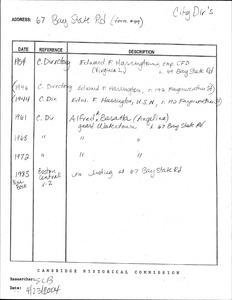 City Dir's
ADDRESS: 67 Bay State Rd (form #49)
DATE REFERENCE DESCRIPTION
C. Directory Edward F. Harrington, emp. CFD
(Virginia L.) r. 67 Bay State Rd
(1946 C. Directory Edward F. Harrington, r. 142 Fayerweather St)
1944 C. Dir Edw. F. Harrington, U.S.N, r. 142 Fayerweather St)
1961 C. Dir Alfred Basatta (Angelina)
guard Watertown r. 67 Bay State Rd
1968 " "
1972 " "
1983 Boston no listing at 67 Bay State Rd
Central
CAMBRIDGE HISTORICAL COMMISSION
Researcher: SLB
Date: 9/23/2004